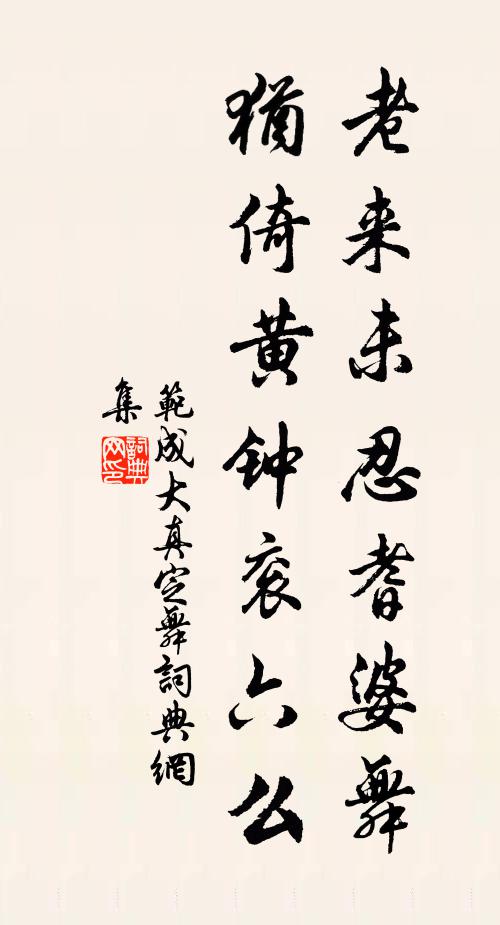 老来未忍耆婆舞
犹倚黄钟衮六么
範成大真定舞詞典網
集
詞典网印